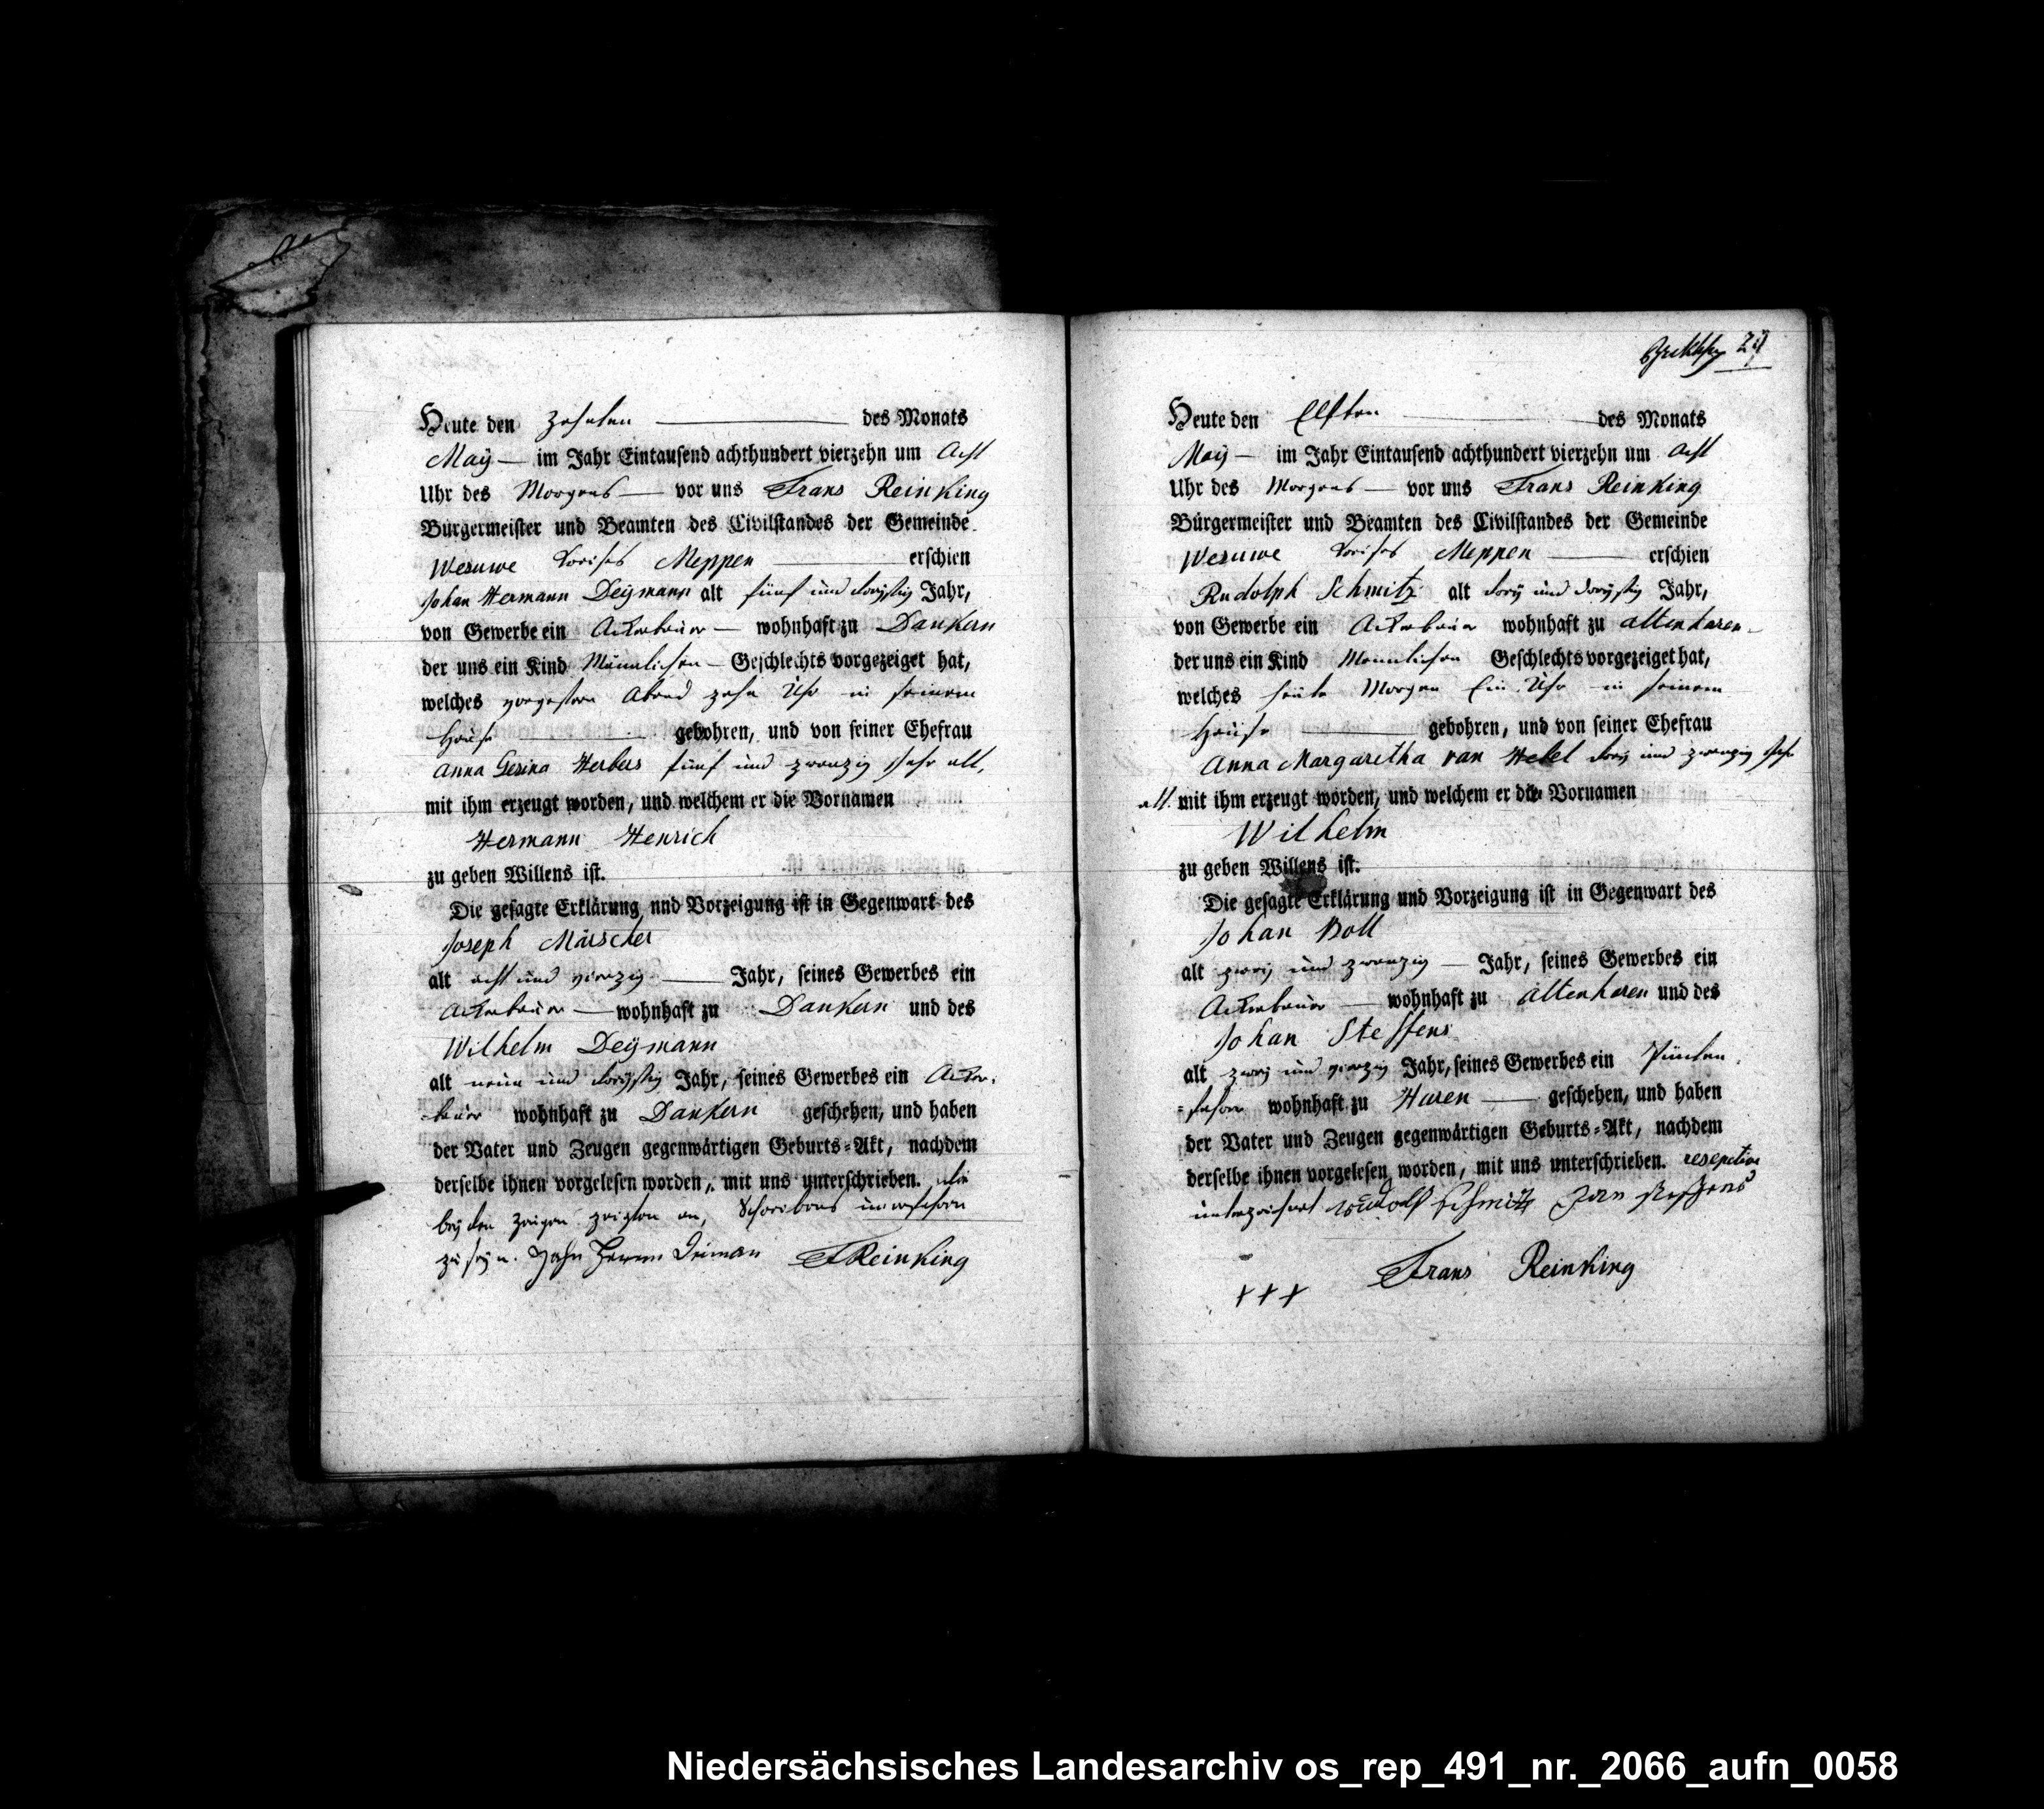 Heute den Zehnten des Monats
May im Jahr Eintausend achthundert vierzehn um Acht
Uhr des Morgens vor uns Frans Reinking
Bürgermeister und Beamten des Civilstandes der Gemeinde
Wesuwe Kreises Meppen erschien
Johan Hermann Deÿmann alt fünf und dreÿßig Jahr,
von Gewerbe ein Ackerbauer wohnhaft zu Dankern
der uns ein Kind Männlichen Geschlechts vorgezeiget hat,
welches vorgestern Abend zehn Uhr in seinem
Hause gebohren, und von seiner Ehefrau
Anna Gesina Herbers fünf und zwanzig Jahr alt,
mit ihm erzeugt worden, und welchem er die Vornamen
Hermann Henrich
zu geben Willens ist.
Die gesagte Erklärung nnd Vorzeigung ist in Gegenwart des
Joseph Märscher
alt acht und vierzig Jahr, seines Gewerbes ein
Ackerbauer wohnhaft zu Dankern und des
Wilhelm Deÿmann
alt neun und dreÿßig Jahr, seines Gewerbes ein Acker-
=bauer wohnhaft zu Dankern geschehen, und haben
der Vater und Zeugen gegenwärtigen Geburts=Akt, nachdem
derselbe ihnen vorgelesen worden, mit uns unterschrieben. die
beÿden Zeugen zeigten an, Schreibens unerfahren
zu seÿn. Jahn Herm Deiman FReinking
29
Heute den Elften des Monats
May im Jahr Eintausend achthundert vierzehn um Acht
Uhr des Morgens vor uns Frans Reinking
Bürgermeister und Beamten des Civilstandes der Gemeinde
Wesuwe Kreises Meppen erschien
Rudolph Schmitz alt dreÿ und dreÿßig Jahr,
von Gewerbe ein Ackerbauer wohnhaft zu Altenharen
der uns ein Kind Mannlichen Geschlechts vorgezeiget hat,
welches heute Morgen Ein Uhr in seinem
Hause gebohren, und von seiner Ehefrau
Anna Margaretha van Hebel dreÿ und zwanzig Jahr
alt mit ihm erzeugt worden, und welchem er die Vornamen
Wilhelm
zu geben Willens ist.
Die gesagte Erklärung und Vorzeigung ist in Gegenwart des
Johan Boll
alt zweÿ und zwanzig Jahr, seines Gewerbes ein
Ackerbauer wohnhaft zu Altenharen und des
Johan Steffens
alt zweÿ und vierzig Jahr, seines Gewerbes ein Pünten
=fahrer wohnhaft zu Haren geschehen, und haben
der Vater und Zeugen gegenwärtigen Geburts=Akt, nachdem
derselbe ihnen vorgelesen worden, mit uns unterschrieben. resepctive
unterzeichnet Rudolf Schmitz Jan Steffens
+++ Frans Reinking
Niedersächsisches Landesarchiv os_rep_491_nr._2066_aufn_0058